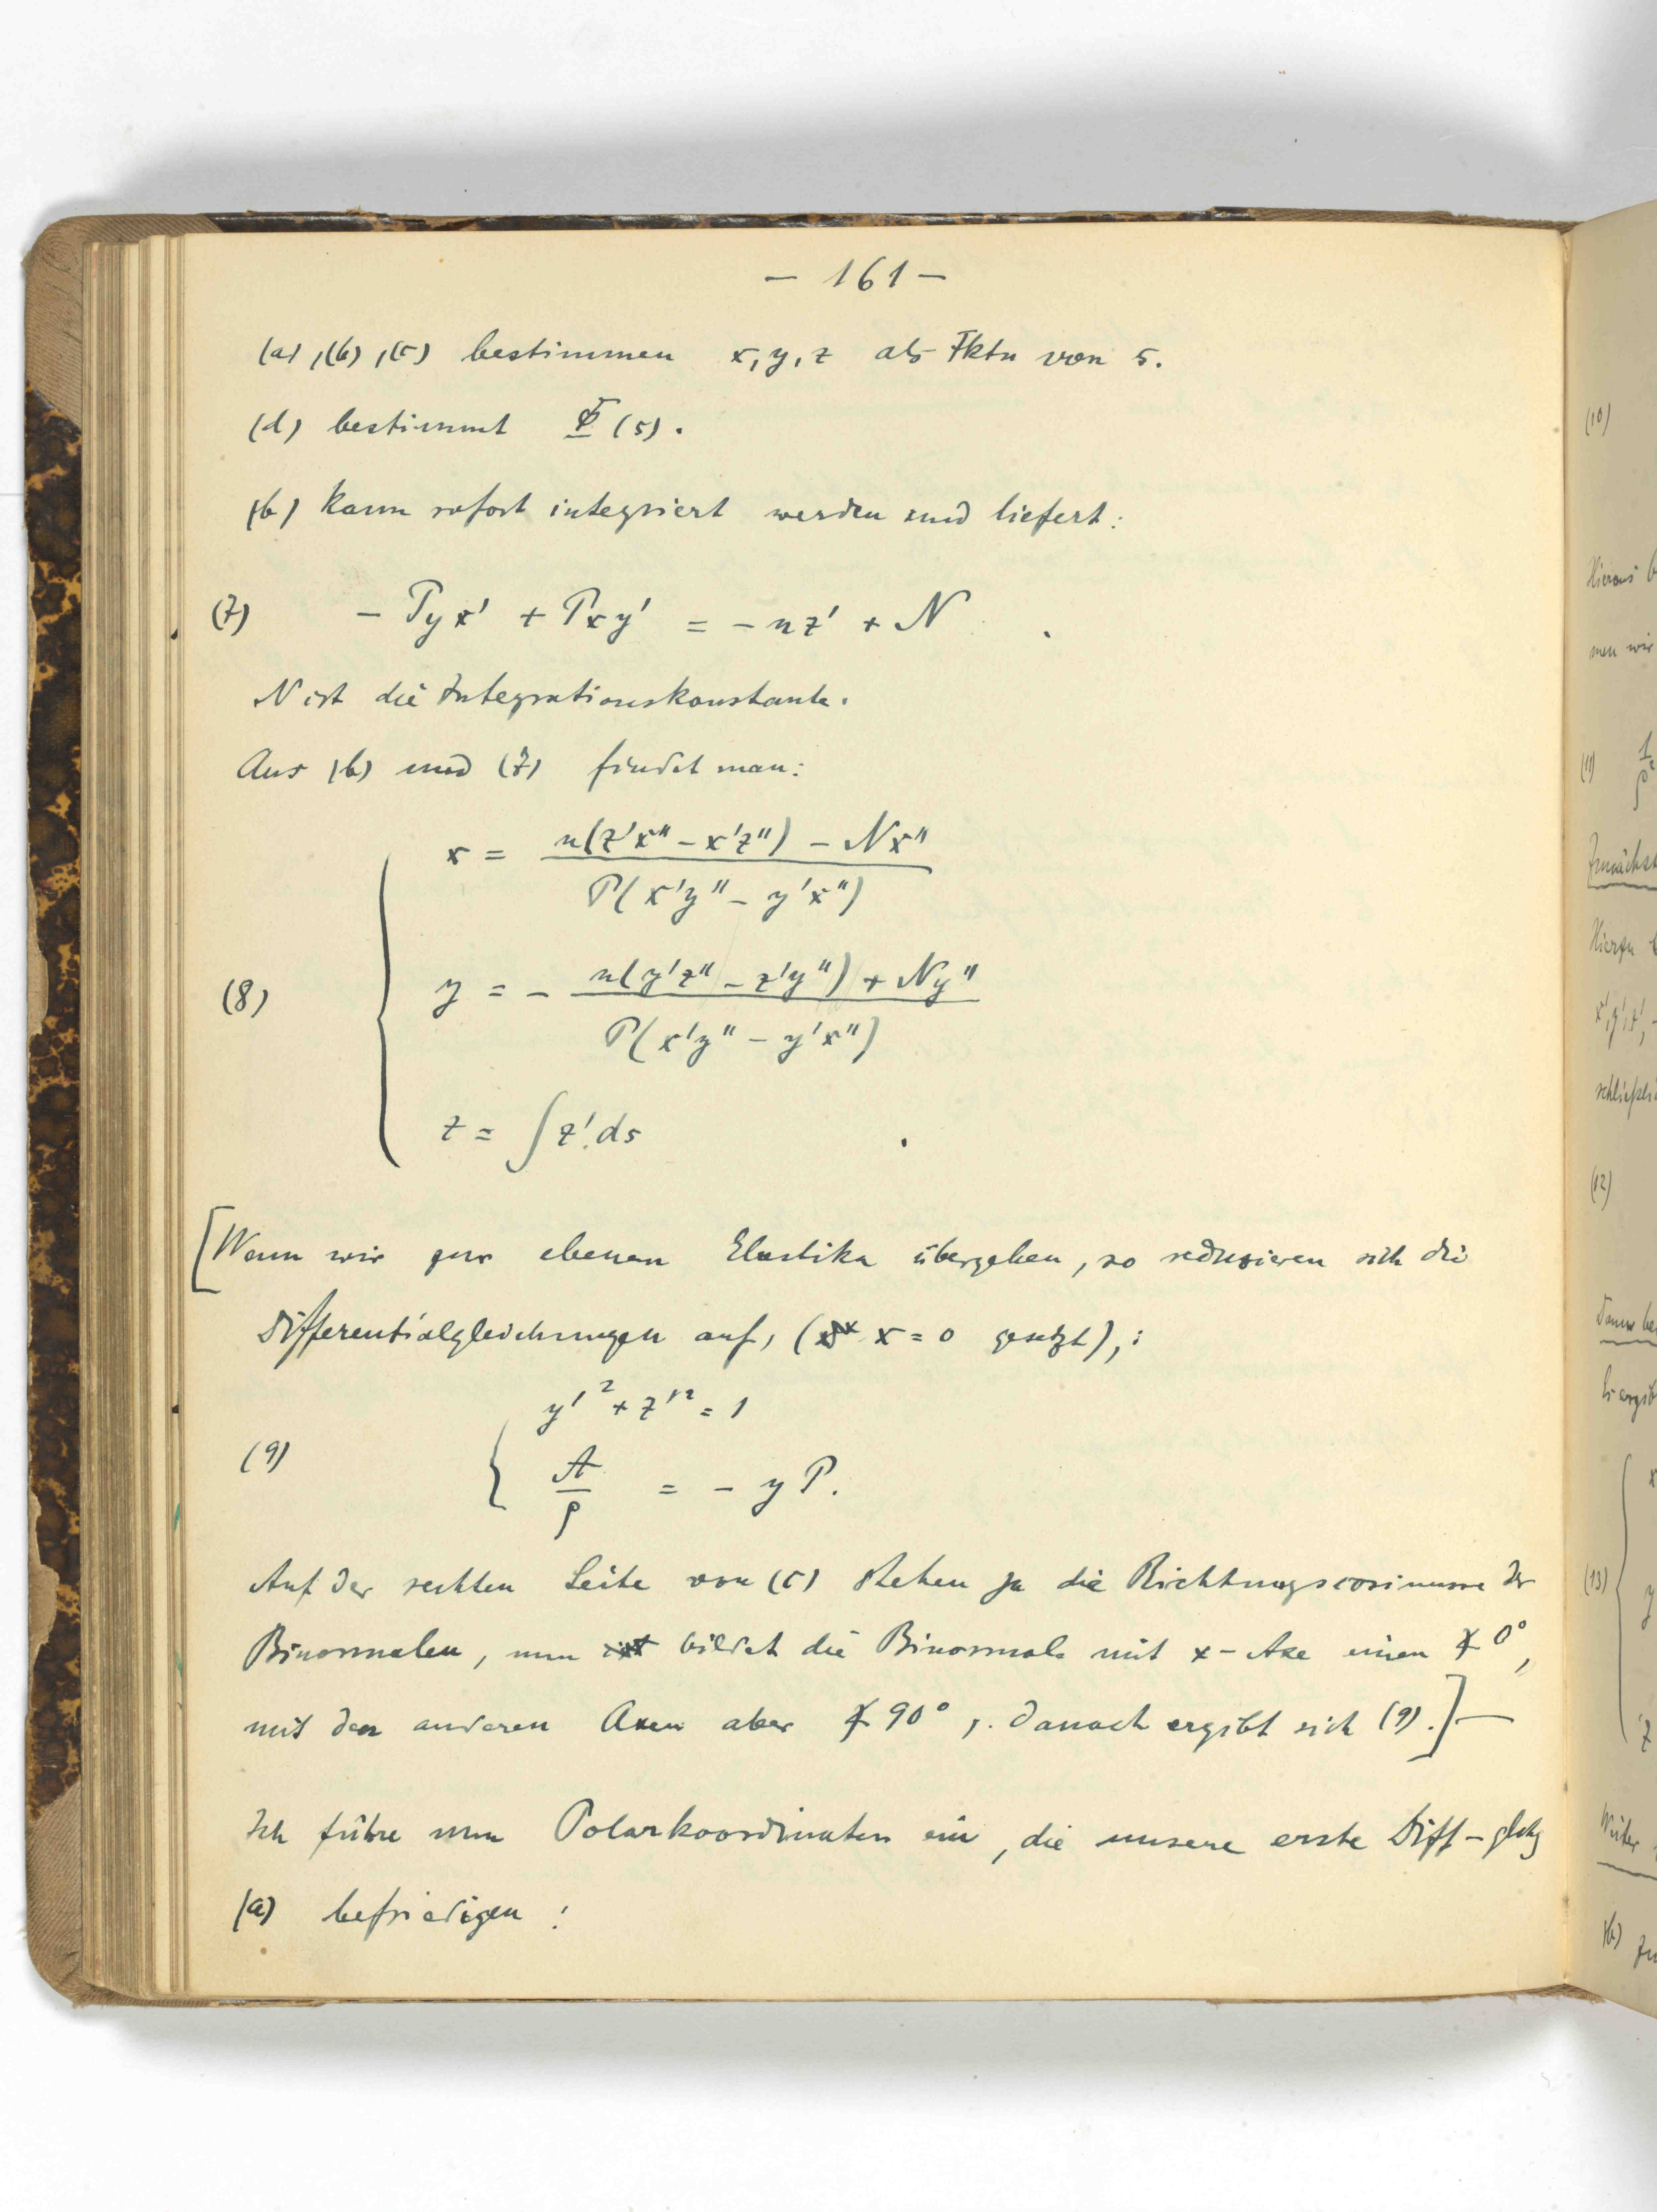 – 161 –
(a), (b), (c) bestimmen x, y, z als Fktn von s.
(d) bestimmt Φ (s).
(b) kann sofort integriert werden und liefert:
(7) – Pyx' + Pxy' = – nz' + N .
N ist die Integrationskonstante.
Aus (b) und (7) findet man:
x = n(z'x" – x'z") – Nx"
P(x'y" – y'x")
(8) y = – n(y'z" – z'y") + Ny"
P(x'y" – y'x")
z = ∫ z' ds .
[Wenn wir zur ebenen Elastika übergehen, so reduzieren sich die
Differentialgleichungen auf, ( x = 0 gesetzt), :
y'² + z'² = 1
(9) A/ρ = – y P.
Auf der rechten Seite von (c) stehen ja die Richtungscosinusse der
Binormalen, nun ist bildet die Binormale mit x – Axe einen ∢ 0°,
mit den anderen Axen aber ∢ 90° , danach ergibt sich (9).] –
Ich führe nun Polarkoordinaten ein, die unsere erste Diff – glchg
(a) befriedigen :
(10)
Hieraus
men wir
(11)
Zunächst
Hierzu
x', y', z',
(12)
(13)
x
y
z
Weiter
(b)